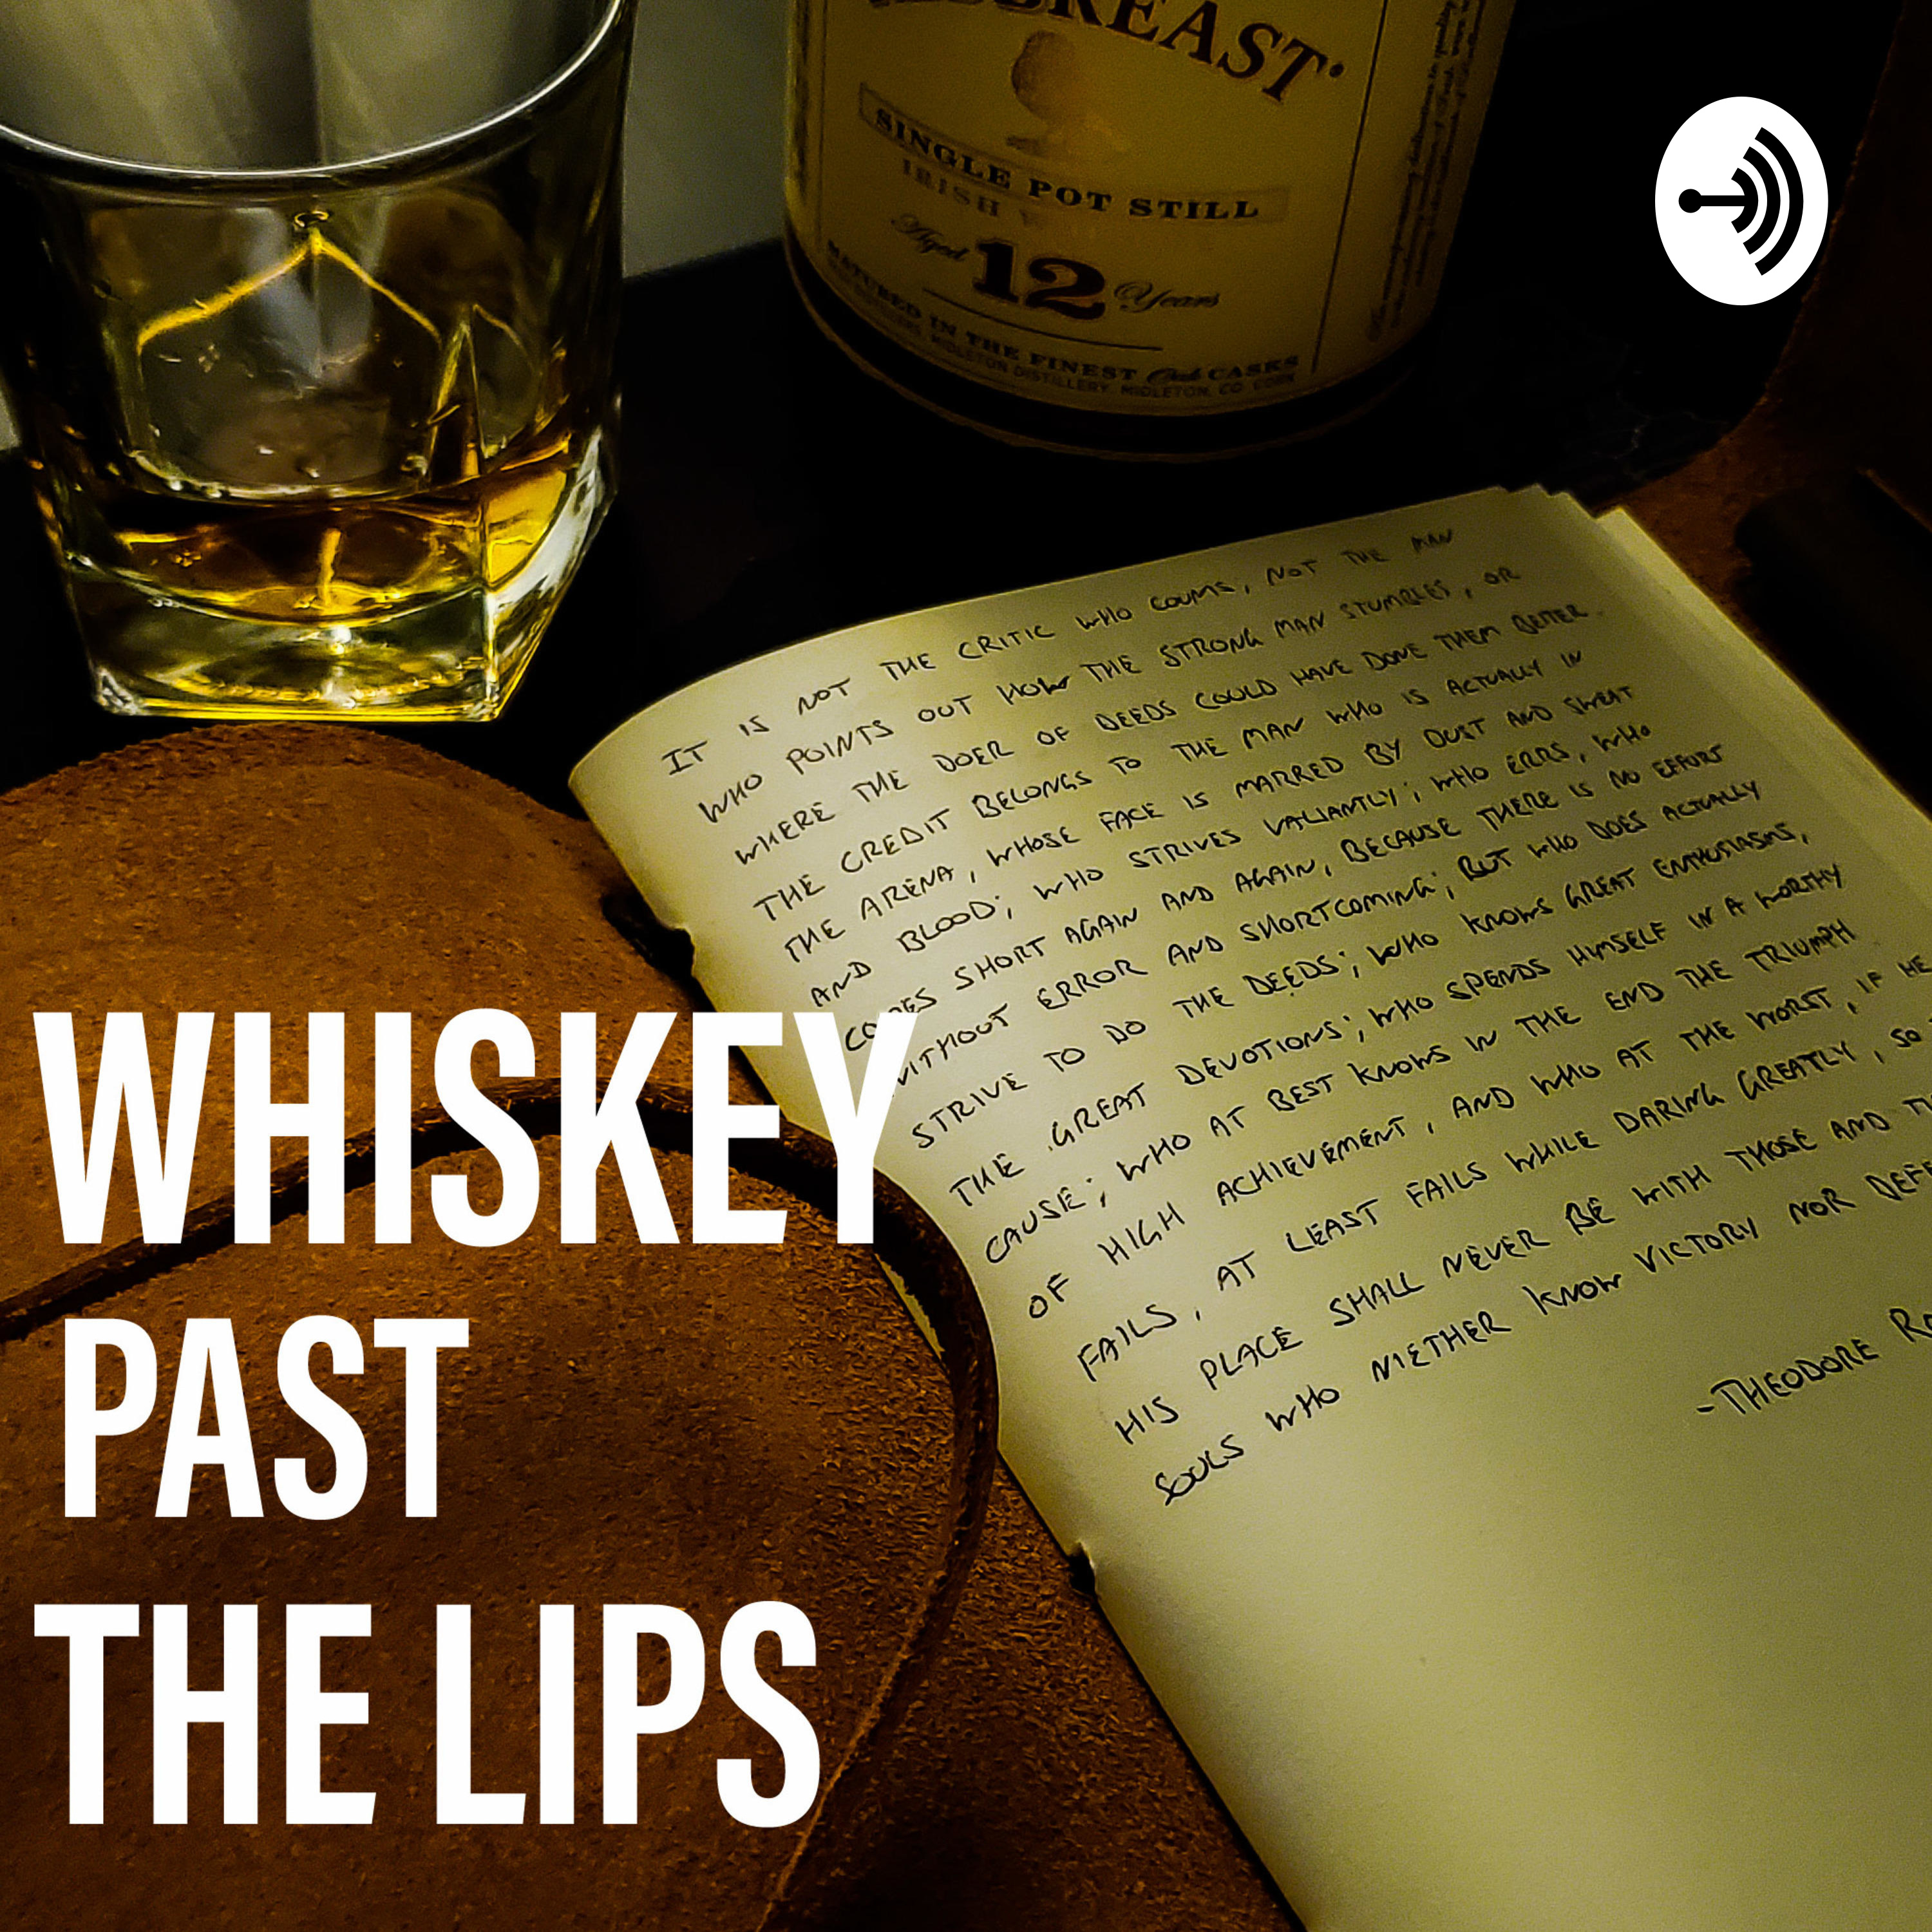 REAST
SINGLE POT STILL
IRISH
Aged 12 Years
MATURED IN THE FINEST Oak CASKS
MIDLETON DISTILLERY, MIDLETON, CO. CORK
IT IS NOT THE CRITIC WHO COUNTS, NOT THE MAN
WHO POINTS OUT HOW THE STRONG MAN STUMBLES, OR
WHERE THE DOER OF DEEDS COULD HAVE DONE THEM BETTER.
THE CREDIT BELONGS TO THE MAN WHO IS ACTUALLY IN
THE ARENA, WHOSE FACE IS MARRED BY DUST AND SWEAT
AND BLOOD; WHO STRIVES VALIANTLY; WHO ERRS, WHO
COMES SHORT AGAIN AND AGAIN, BECAUSE THERE IS NO EFFORT
WITHOUT ERROR AND SHORTCOMING; BUT WHO DOES ACTUALLY
STRIVE TO DO THE DEEDS; WHO KNOWS GREAT ENTHUSIASMS,
THE GREAT DEVOTIONS; WHO SPENDS HIMSELF IN A WORTHY
CAUSE; WHO AT BEST KNOWS IN THE END THE TRIUMPH
OF HIGH ACHIEVEMENT, AND WHO AT THE WORST, IF HE
FAILS, AT LEAST FAILS WHILE DARING GREATLY, SO
HIS PLACE SHALL NEVER BE WITH THOSE AND
SOULS WHO NIETHER KNOW VICTORY NOR DEFE
-THEODORE RO
WHISKEY
PAST
THE LIPS